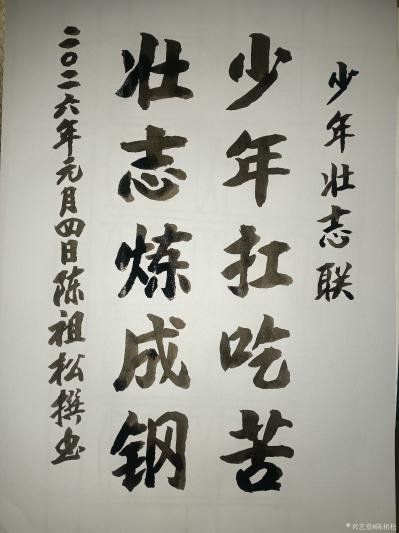 少年壮志联
少年扛吃苦
壮志炼成钢
二〇二六年元月四日陈祖松撰书
兴艺堂#陈祖松